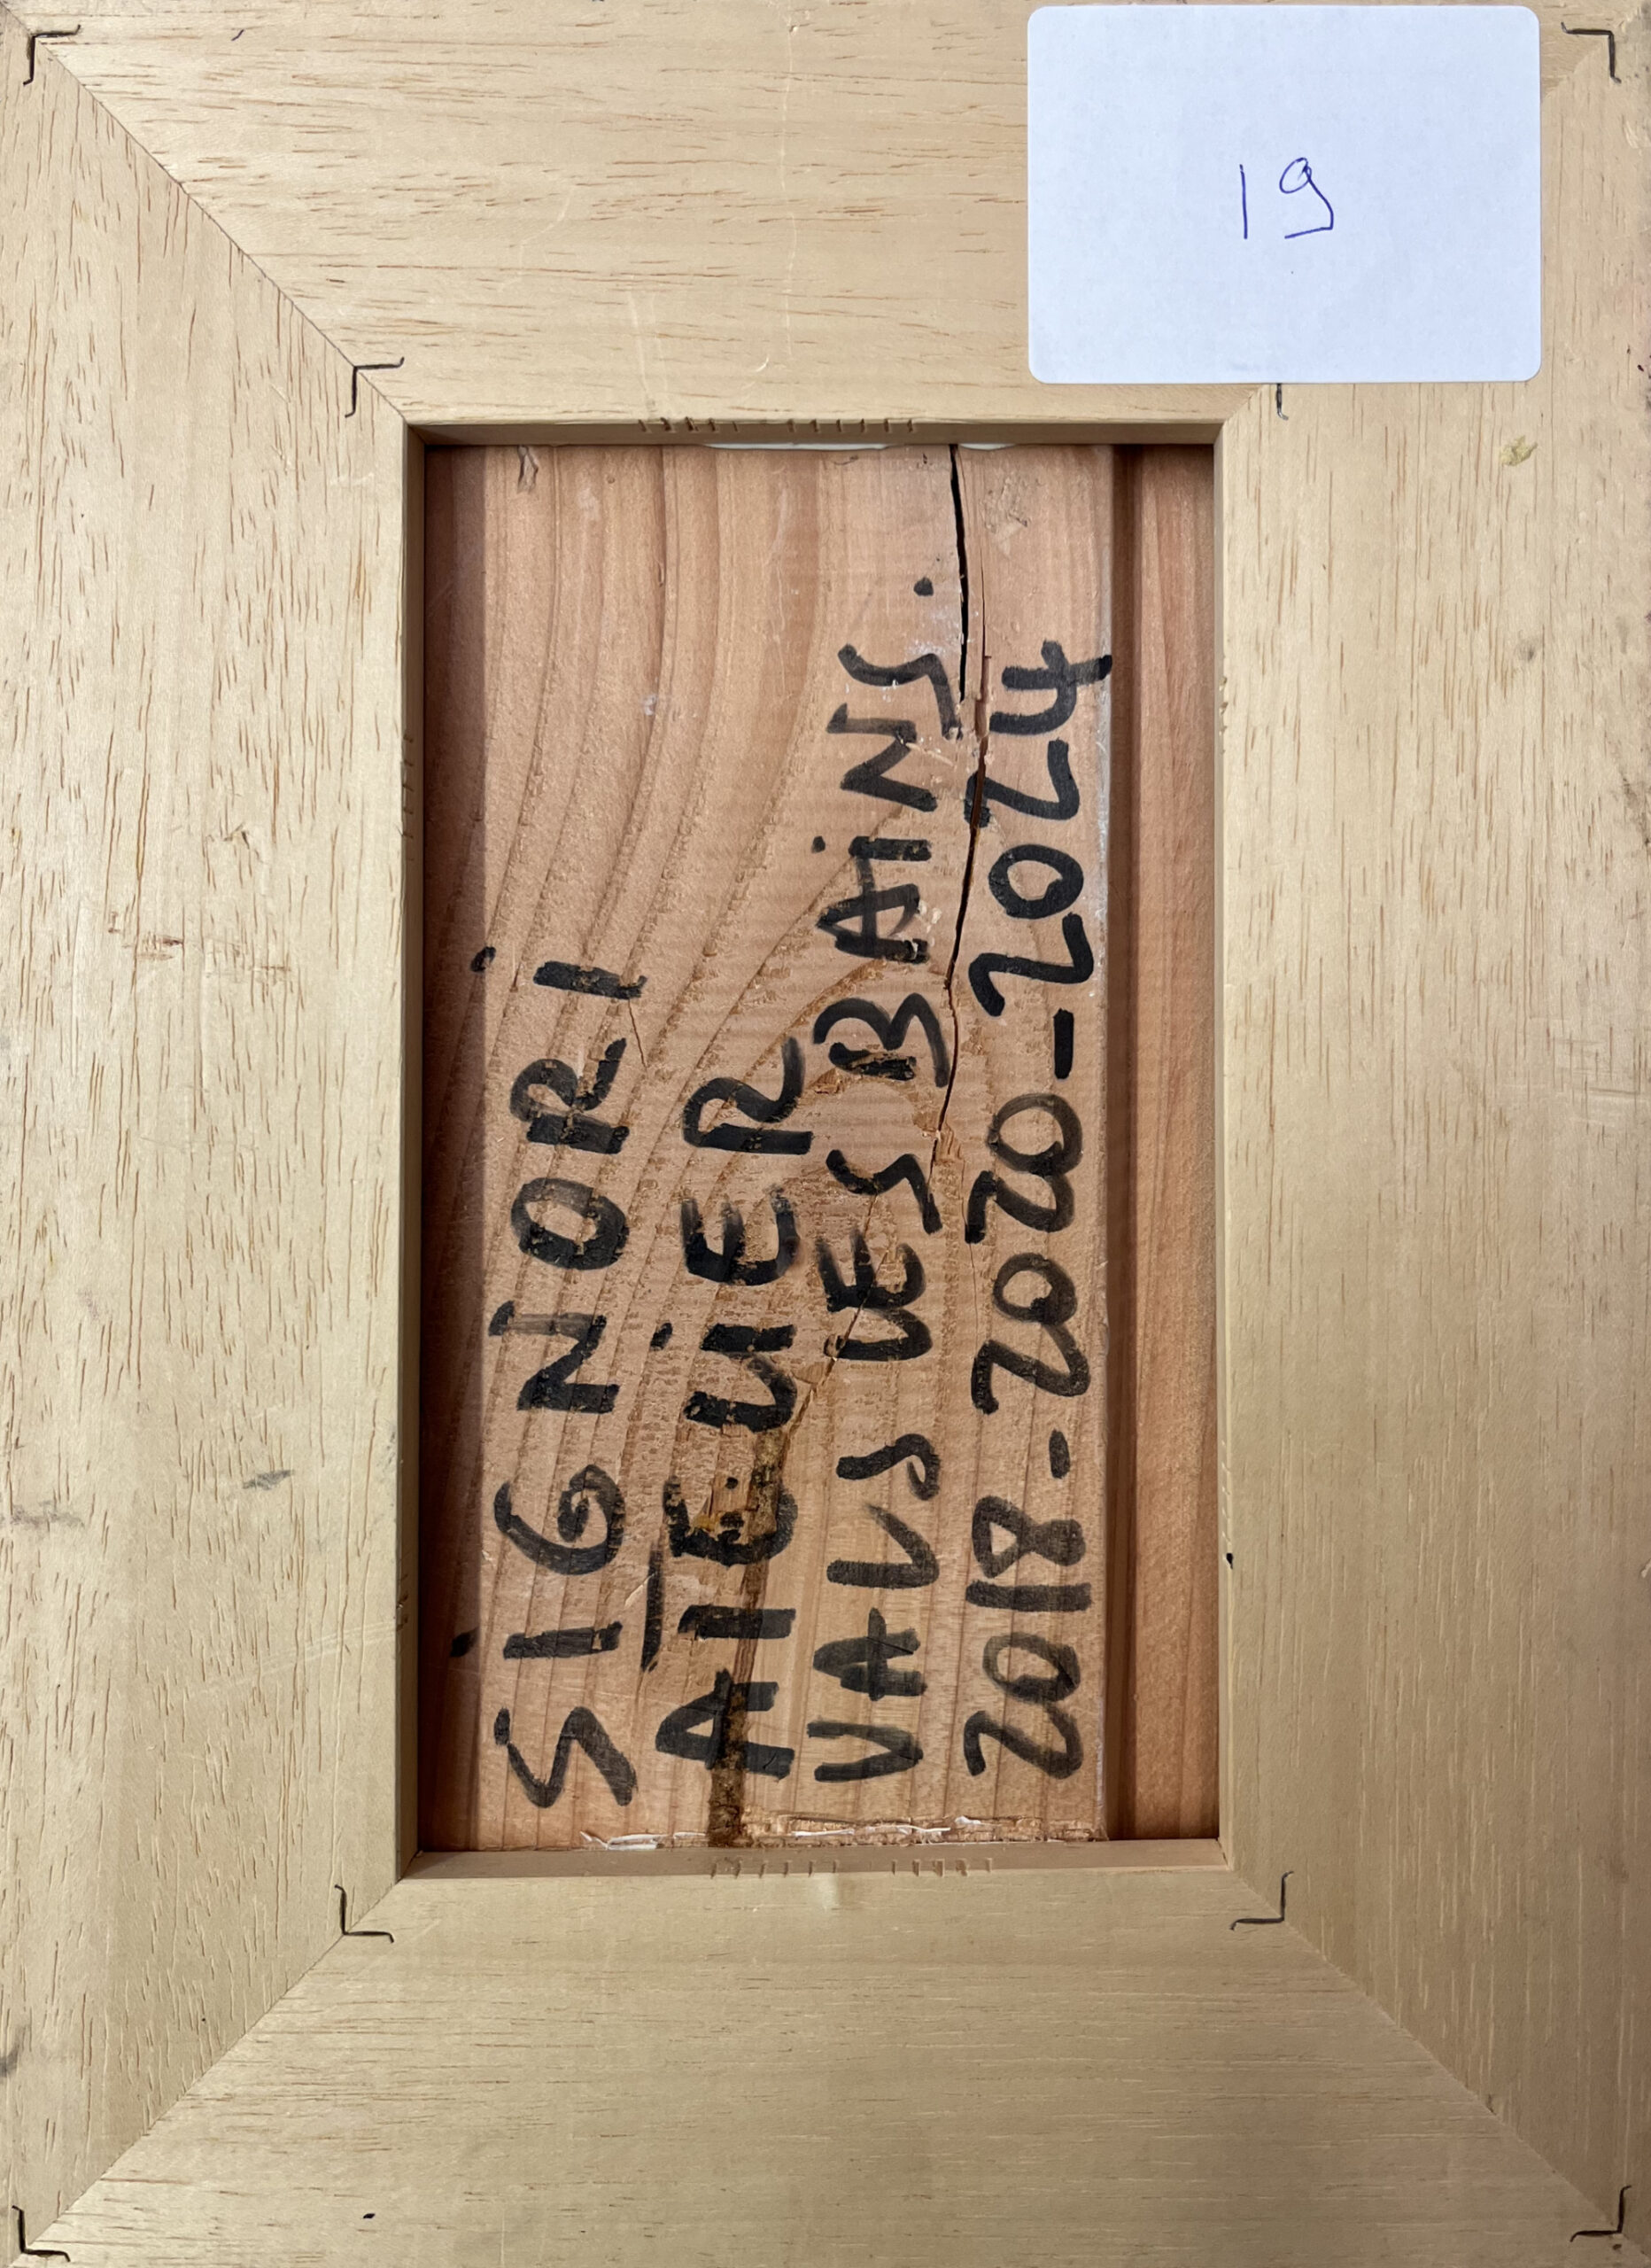 19
SIGNORI
ATELIER
VALS LES BAINS.
2018-2020-2024